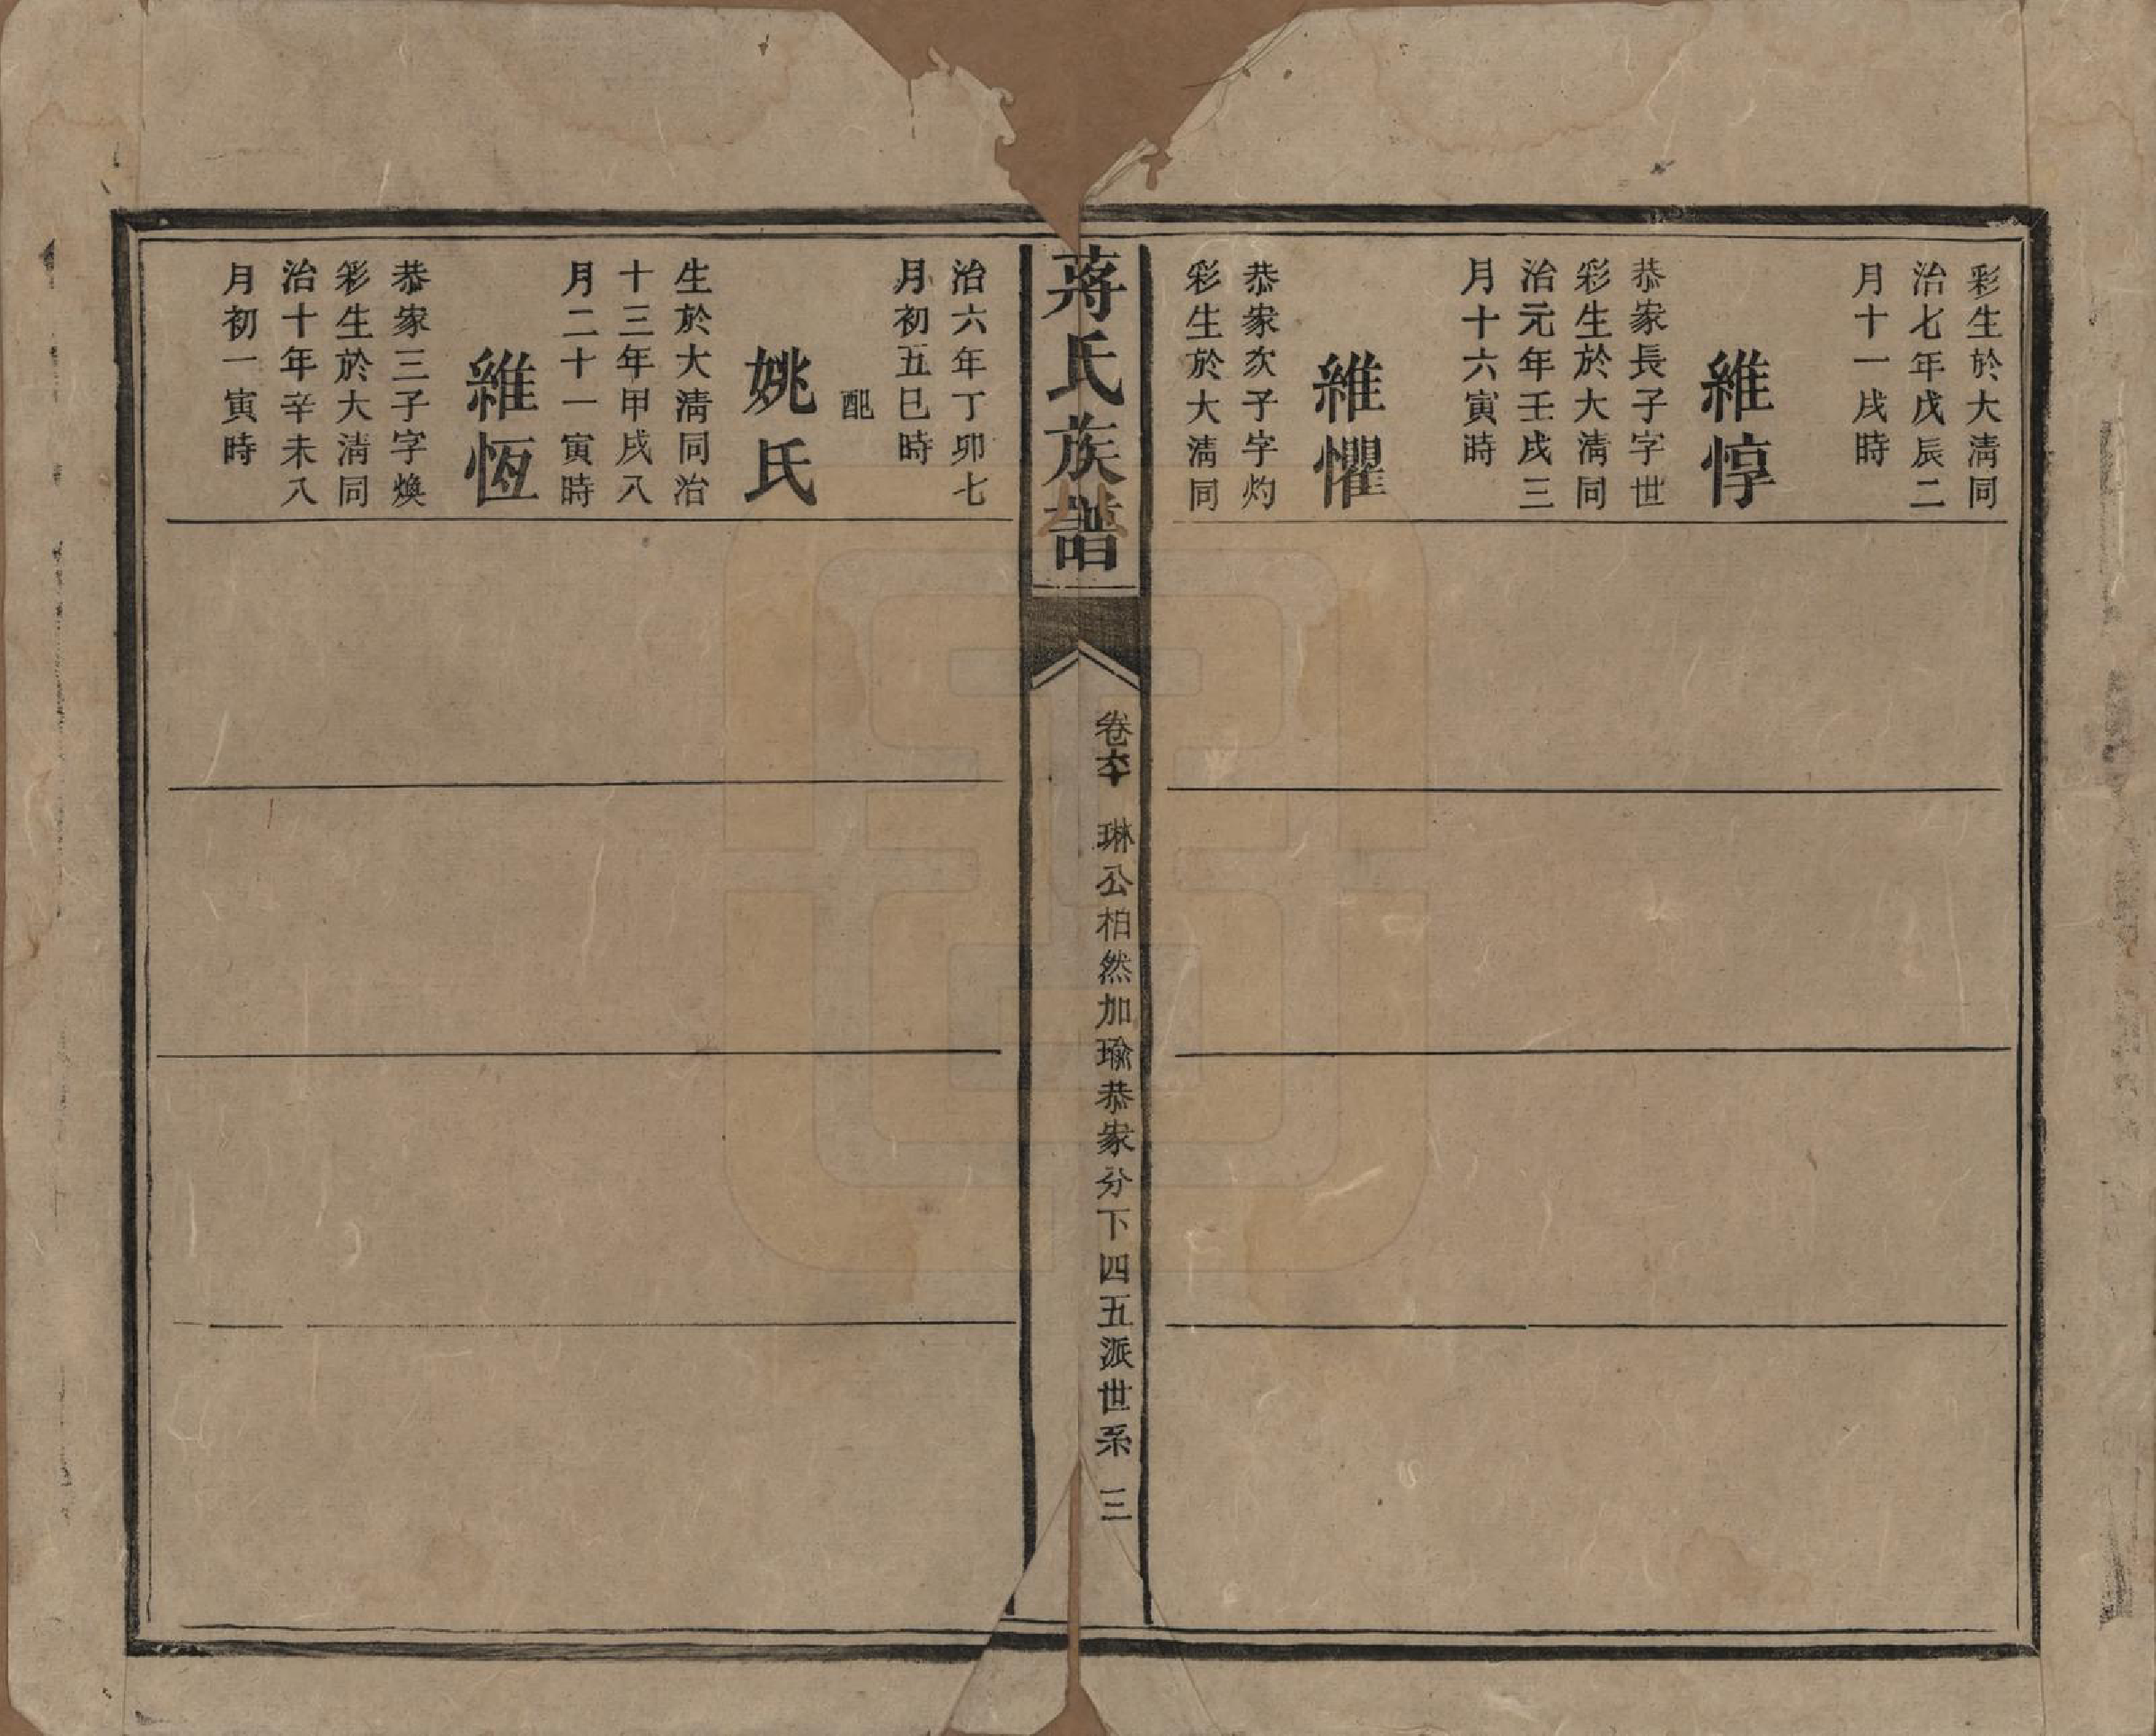 彩生於大清同
治七年戊辰二
月十一戌時
維惇
恭家長子字世
彩生於大清同
治元年壬戌三
月十六寅時
維懼
恭家次子字灼
彩生於大清同
蔣氏族譜
琳公柏然加瑜恭家分下四五派世系 三
治六年丁卯七
月初五巳時
配
姚氏
生於大清同治
十三年甲戌八
月二十一寅時
維恆
恭家三子字煥
彩生於大清同
治十年辛未八
月初一寅時